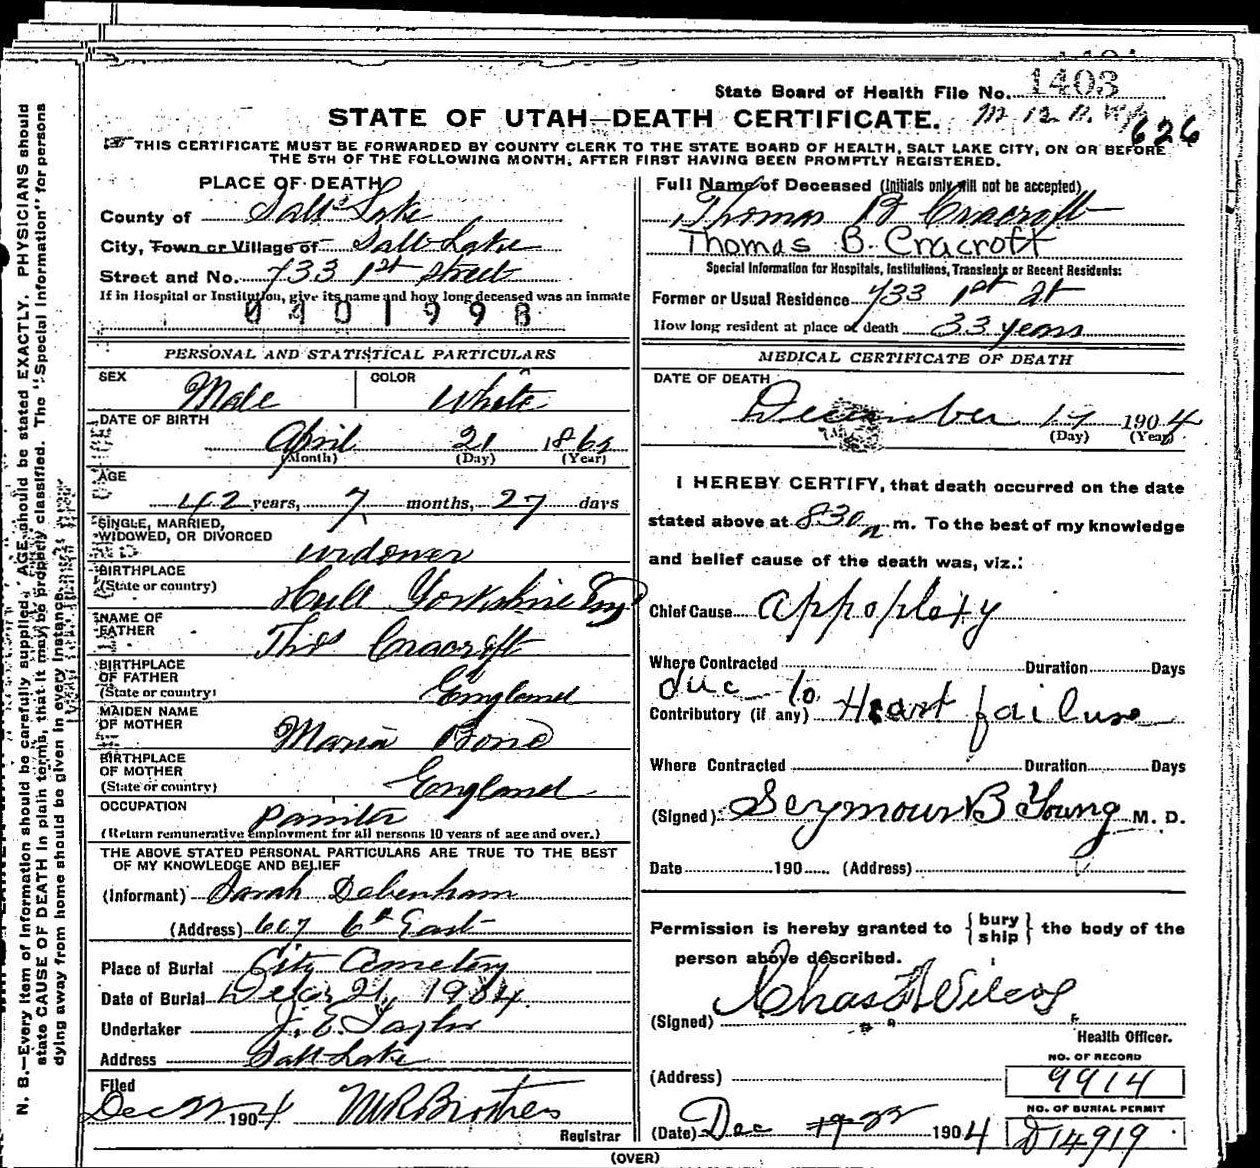 State Board of Health File No. 1403
STATE OF UTAH—DEATH CERTIFICATE.
626
THIS CERTIFICATE MUST BE FORWARDED BY COUNTY CLERK TO THE STATE BOARD OF HEALTH, SALT LAKE CITY, ON OR BEFORE
THE 5TH OF THE FOLLOWING MONTH, AFTER FIRST HAVING BEEN PROMPTLY REGISTERED.
PLACE OF DEATH
County of Salt Lake
City, Town or Village of Salt Lake
Street and No. 733 1st Street
If in Hospital or Institution, give its name and how long deceased was an inmate
0401998
PERSONAL AND STATISTICAL PARTICULARS
SEX Male COLOR White
DATE OF BIRTH
April 21 1862
(Month) (Day) (Year)
AGE
42 years, 7 months, 27 days
SINGLE, MARRIED,
WIDOWED, OR DIVORCED widower
BIRTHPLACE
(State or country) Hull Yorkshire Eng
NAME OF
FATHER Thos Cracroft
BIRTHPLACE
OF FATHER
(State or country) England
MAIDEN NAME
OF MOTHER Maria Bone
BIRTHPLACE
OF MOTHER
(State or country) England
OCCUPATION Painter
(Return remunerative employment for all persons 10 years of age and over.)
THE ABOVE STATED PERSONAL PARTICULARS ARE TRUE TO THE BEST
OF MY KNOWLEDGE AND BELIEF
(Informant) Sarah Debenham
(Address) 607 6th East
Place of Burial City Cemetery
Date of Burial Dec. 21, 1904.
Undertaker J. E. Taylor
Address Salt Lake
Filed
Dec 22 1904 M R Brothers
Registrar
Full Name of Deceased (Initials only will not be accepted)
Thomas B Cracroft
Thomas B. Cracroft
Special Information for Hospitals, Institutions, Transients or Recent Residents:
Former or Usual Residence 733 1st St
How long resident at place of death 33 years
MEDICAL CERTIFICATE OF DEATH
DATE OF DEATH
December 17 1904
(Day) (Year)
I HEREBY CERTIFY, that death occurred on the date
stated above at 830 m. To the best of my knowledge
and belief cause of the death was, viz.:
Chief Cause appoplexy
Where Contracted Duration Days
due to
Contributory (if any) Heart failure
Where Contracted Duration Days
(Signed) Seymour B Young M. D.
Date 190 (Address)
Permission is hereby granted to { bury ship } the body of the
person above described.
(Signed) Chas F Wilcox
Health Officer.
NO. OF RECORD
(Address) 9914
NO. OF BURIAL PERMIT
(Date) Dec 22 1904 D14919
(OVER)
N. B.—Every item of information should be carefully supplied. AGE should be stated EXACTLY. PHYSICIANS should
state CAUSE OF DEATH in plain terms, that it may be properly classified. The "Special Information" for persons
dying away from home should be given in every instance.